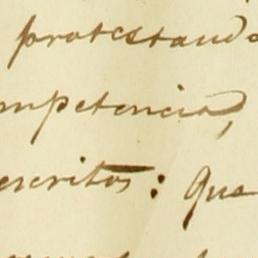 protestando
mpetencia,
escritos: Que